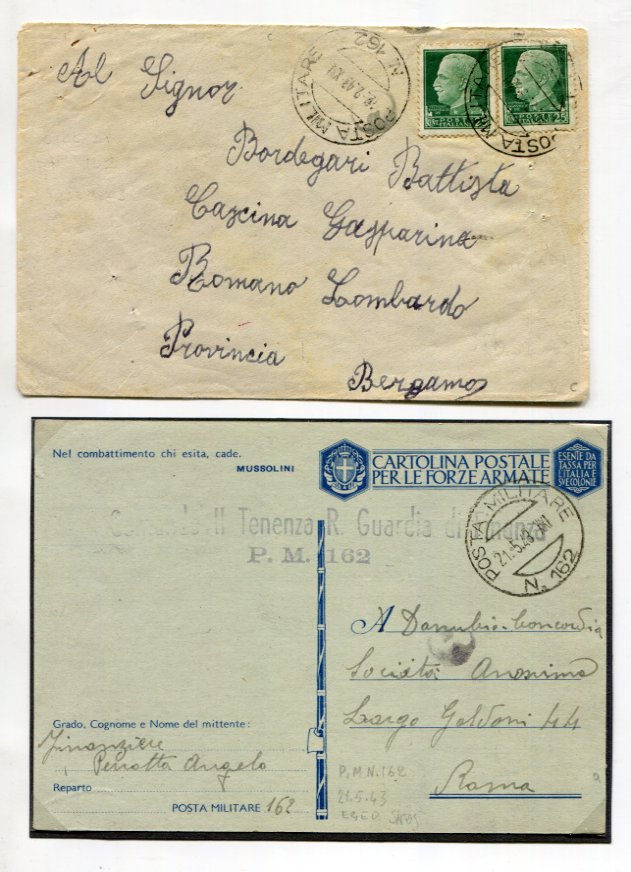 Al Signor
POSTA MILITARE
N. 162
POSTA MILITARE
Bordegari Battista
Cascina Gasparina
Romano Lombardo
Provincia
Bergamo
Nel combattimento chi esita, cade.
MUSSOLINI
CARTOLINA POSTALE
PER LE FORZE ARMATE
ESENTE DA
TASSA PER
L'ITALIA E
SUE COLONIE
Comando II Tenenza R. Guardia di Finanza
P. M. 162
POSTA MILITARE
21.5.43 XXI
N. 162
A Danubio-Concordia
Società Anonima
Largo Goldoni 44
Roma
Grado, Cognome e Nome del mittente:
Finanziere
Perrotta Angelo
Reparto
POSTA MILITARE 162
P.M.N. 162
21.5.43
EGEO